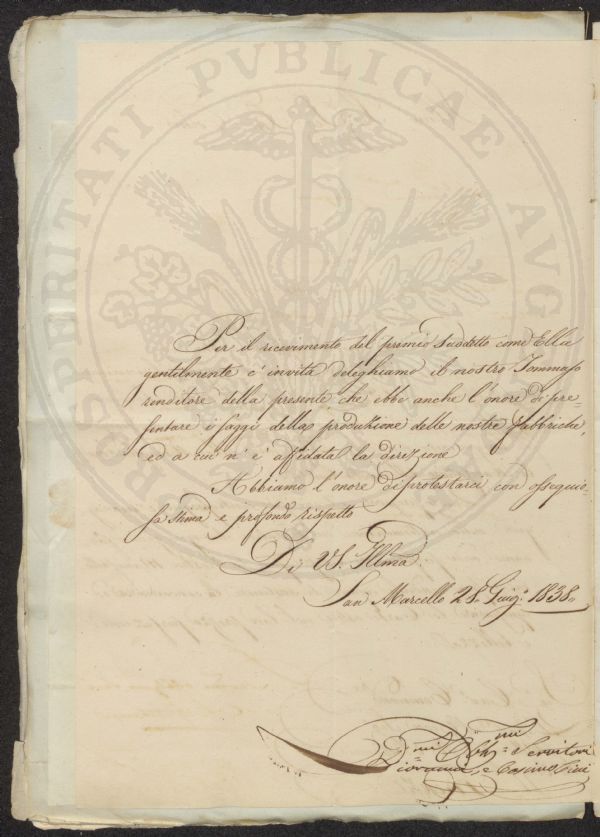 PROSPERITATI PVBLICAE AVG
Per il ricevimento del premio suddetto come Ella
gentilmente c'invita deleghiamo il nostro Tommaso
renditore della presente che ebbe anche l'onore di pre-
sentare i saggi della produzione delle nostre fabbriche,
ed a cui n'è affidata la direzione
Abbiamo l'onore di protestarci con ossequio-
sa stima e profondo rispetto
Di VS. Illma
San Marcello 28. Giug.° 1838.
Dmi Obbmi Servitori
Giovanni e Cosimo Cini